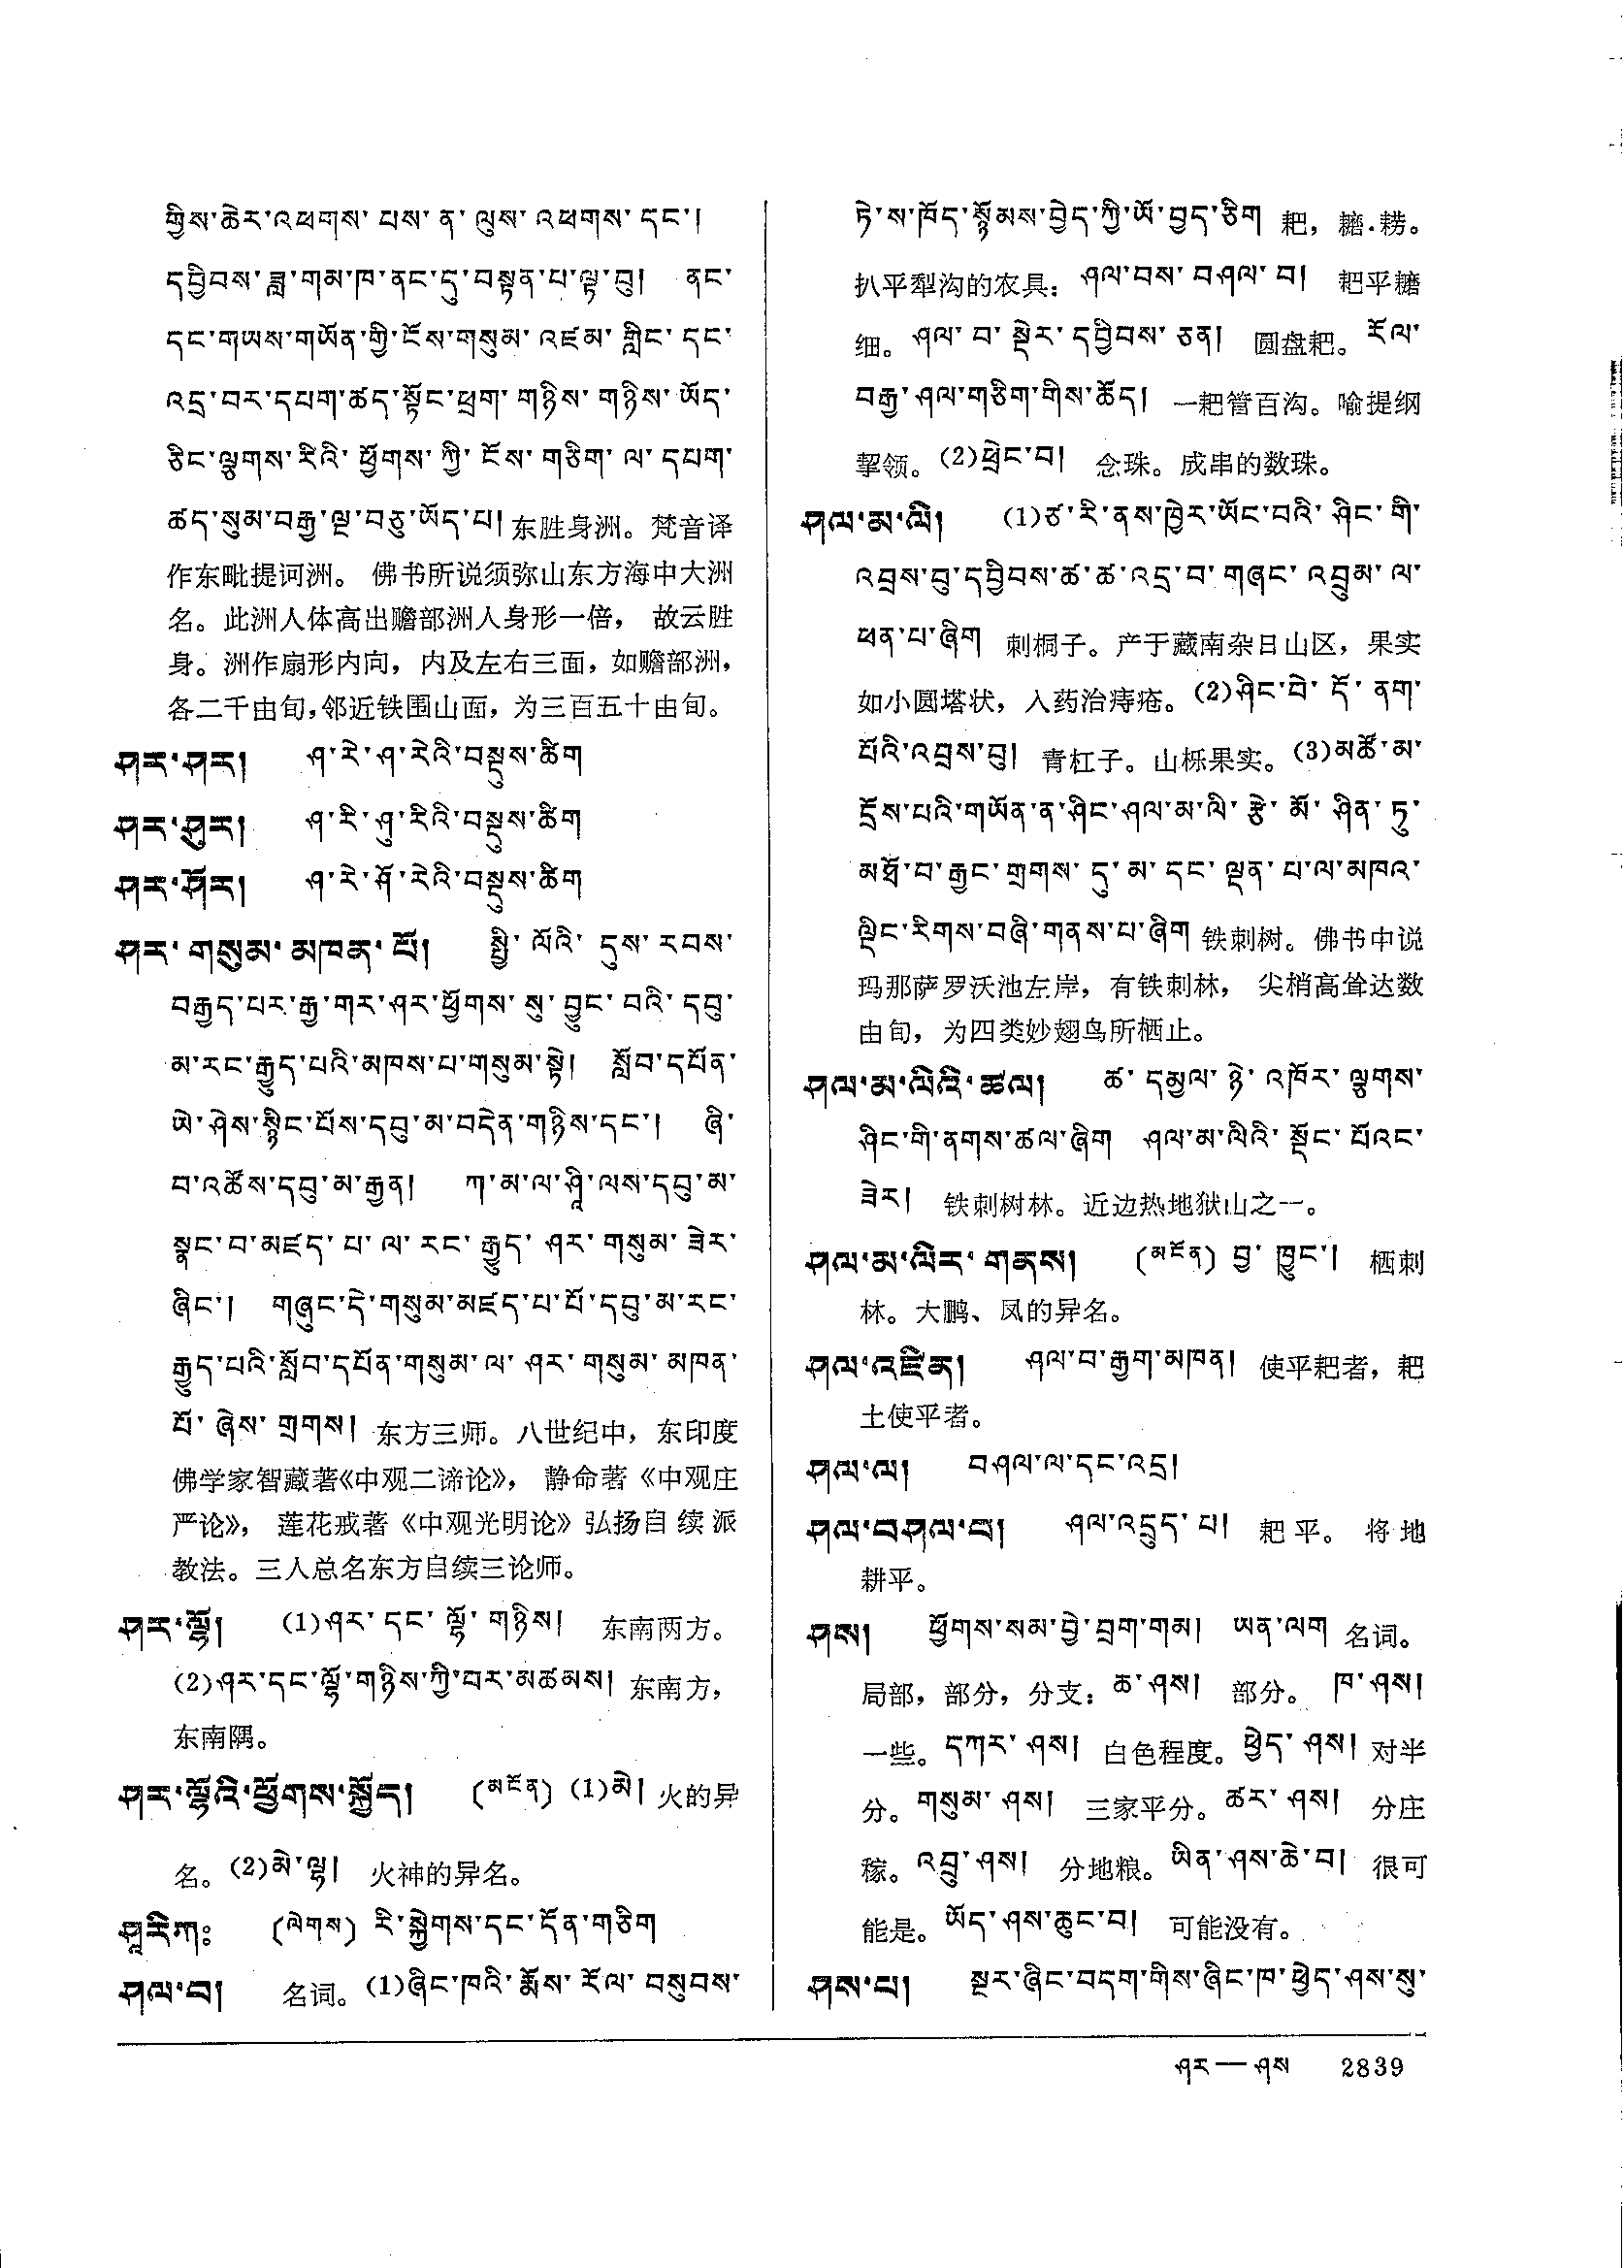 གྱིས་ཆེར་འཕགས་པས་ན་ལུས་འཕགས་དང་།
དབྱིབས་ཟླ་གམ་ཁ་ནང་དུ་བསྟན་པ་ལྟ་བུ། ནང་
དང་གཡས་གཡོན་གྱི་ངོས་གསུམ་འཛམ་གླིང་དང་
འདྲ་བར་དཔག་ཚད་སྟོང་ཕྲག་གཉིས་གཉིས་ཡོད་
ཅིང་ལྕགས་རིའི་ཕྱོགས་ཀྱི་ངོས་གཅིག་ལ་དཔག་
ཚད་སུམ་བརྒྱ་ལྔ་བཅུ་ཡོད་པ། 东胜身洲。梵音译
作东毗提诃洲。 佛书所说须弥山东方海中大洲
名。此洲人体高出赡部洲人身形一倍， 故云胜
身。洲作扇形内向，内及左右三面，如赡部洲，
各二千由旬，邻近铁围山面，为三百五十由旬。
ཤར་ཤར། ཤ་རེ་ཤ་རེའི་བསྡུས་ཚིག
ཤར་ཤུར། ཤ་རི་ཤུ་རིའི་བསྡུས་ཚིག
ཤར་ཤོར། ཤ་རེ་ཤོ་རེའི་བསྡུས་ཚིག
ཤར་གསུམ་མཁན་པོ། སྤྱི་ལོའི་དུས་རབས་
བརྒྱད་པར་རྒྱ་གར་ཤར་ཕྱོགས་སུ་བྱུང་བའི་དབུ་
མ་རང་རྒྱུད་པའི་མཁས་པ་གསུམ་སྟེ། སློབ་དཔོན་
ཡེ་ཤེས་སྙིང་པོས་དབུ་མ་བདེན་གཉིས་དང་། ཞི་
བ་འཚོས་དབུ་མ་རྒྱན། ཀ་མ་ལ་ཤཱི་ལས་དབུ་མ་
སྣང་བ་མཛད་པ་ལ་རང་རྒྱུད་ཤར་གསུམ་ཟེར་
ཞིང་། གཞུང་དེ་གསུམ་མཛད་པ་པོ་དབུ་མ་རང་
རྒྱུད་པའི་སློབ་དཔོན་གསུམ་ལ་ཤར་གསུམ་མཁན་
པོ་ཞེས་གྲགས། 东方三师。八世纪中，东印度
佛学家智藏著《中观二谛论》， 静命著《中观庄
严论》， 莲花戒著《中观光明论》弘扬自续派
教法。三人总名东方自续三论师。
ཤར་ལྷོ། (1)ཤར་དང་ལྷོ་གཉིས། 东南两方。
(2)ཤར་དང་ལྷོ་གཉིས་ཀྱི་བར་མཚམས། 东南方，
东南隅。
ཤར་ལྷོའི་ཕྱོགས་སྐྱོད། (མངོན) (1)མེ། 火的异
名。(2)མེ་ལྷ། 火神的异名。
ཤཱརིཀཿ (ལེགས) རི་སྐྱེགས་དང་དོན་གཅིག
ཤལ་བ། 名词。(1)ཞིང་ཁའི་རྨོས་རོལ་བསུབས་
ཏེ་ས་ཁོད་སྙོམས་བྱེད་ཀྱི་ཡོ་བྱད་ཅིག 耙，耱.耢。
扒平犁沟的农具：ཤལ་བས་བཤལ་བ། 耙平耱
细。ཤལ་བ་སྡེར་དབྱིབས་ཅན། 圆盘耙。རོལ་
བརྒྱ་ཤལ་གཅིག་གིས་ཆོད། 一耙管百沟。喻提纲
挈领。(2)ཕྲེང་བ། 念珠。成串的数珠。
ཤལ་མ་ལི། (1)ཙ་རི་ནས་ཁྱེར་ཡོང་བའི་ཤིང་གི་
འབྲས་བུ་དབྱིབས་ཚ་ཚ་འདྲ་བ་གཞང་འབྲུམ་ལ་
ཕན་པ་ཞིག 刺桐子。产于藏南杂日山区，果实
如小圆塔状，入药治痔疮。(2)ཤིང་བེ་དོ་ནག་
པོའི་འབྲས་བུ། 青杠子。山栎果实。(3)མཚོ་མ་
དྲོས་པའི་གཡོན་ན་ཤིང་ཤལ་མ་ལི་རྩེ་མོ་ཤིན་ཏུ་
མཐོ་བ་རྒྱང་གྲགས་དུ་མ་དང་ལྡན་པ་ལ་མཁའ་
ལྡིང་རིགས་བཞི་གནས་པ་ཞིག 铁刺树。佛书中说
玛那萨罗沃池左岸，有铁刺林， 尖梢高耸达数
由旬，为四类妙翅鸟所栖止。
ཤལ་མ་ལིའི་ཚལ། ཚ་དམྱལ་ཉེ་འཁོར་ལྕགས་
ཤིང་གི་ནགས་ཚལ་ཞིག ཤལ་མ་ལིའི་སྡོང་པོའང་
ཟེར། 铁刺树林。近边热地狱山之一。
ཤལ་མ་ལིར་གནས། (མངོན) བྱ་ཁྱུང་། 栖刺
林。大鹏、凤的异名。
ཤལ་འཛིན། ཤལ་བ་རྒྱག་མཁན། 使平耙者，耙
土使平者。
ཤལ་ལ། བཤལ་ལ་དང་འདྲ།
ཤལ་བཤལ་བ། ཤལ་འདྲུད་པ། 耙平。 将地
耕平。
ཤས། ཕྱོགས་སམ་བྱེ་བྲག་གམ། ཡན་ལག 名词。
局部，部分，分支：ཆ་ཤས། 部分。 ཁ་ཤས།
一些。དཀར་ཤས། 白色程度。ཕྱེད་ཤས། 对半
分。གསུམ་ཤས། 三家平分。ཚར་ཤས། 分庄
稼。འབྲུ་ཤས། 分地粮。ཡིན་ཤས་ཆེ་བ། 很可
能是。ཡོད་ཤས་ཆུང་བ། 可能没有。
ཤས་པ། སྔར་ཞིང་བདག་གིས་ཞིང་ཁ་ཕྱེད་ཤས་སུ་
ཤར—ཤས 2839